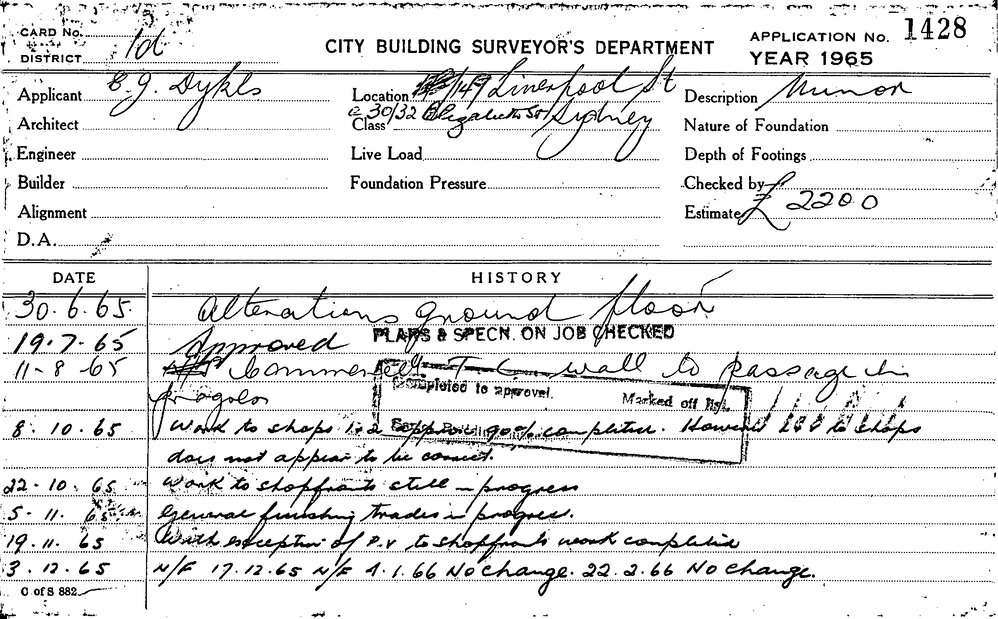 CARD No.
DISTRICT 1d
CITY BUILDING SURVEYOR'S DEPARTMENT
APPLICATION No. 1428
YEAR 1965
Applicant E. J. Dykes
Location 149 Liverpool St
Description Minor
Architect
& 30/32 Elizabeth St Sydney
Class
Nature of Foundation
Engineer
Live Load
Depth of Footings
Builder
Foundation Pressure
Checked by
Alignment
Estimate £ 2200
D.A.
DATE HISTORY
30.6.65. Alterations ground floor
19.7.65 Approved PLANS & SPECN. ON JOB CHECKED
11-8-65 Commenced wall to passage in
progress
Completed to approval. Marked off list.
8.10.65 Work to shops is approx 90% completed. However to shops
does not appear to be correct.
22-10.65 Work to shopfronts still in progress
5-11.65 General finishing trades in progress.
19.11.65 With exception of P.V to shopfronts work completed
3.12.65 N/F 17.12.65 N/F 4.1.66 No change. 22.2.66 No change.
C of S 882